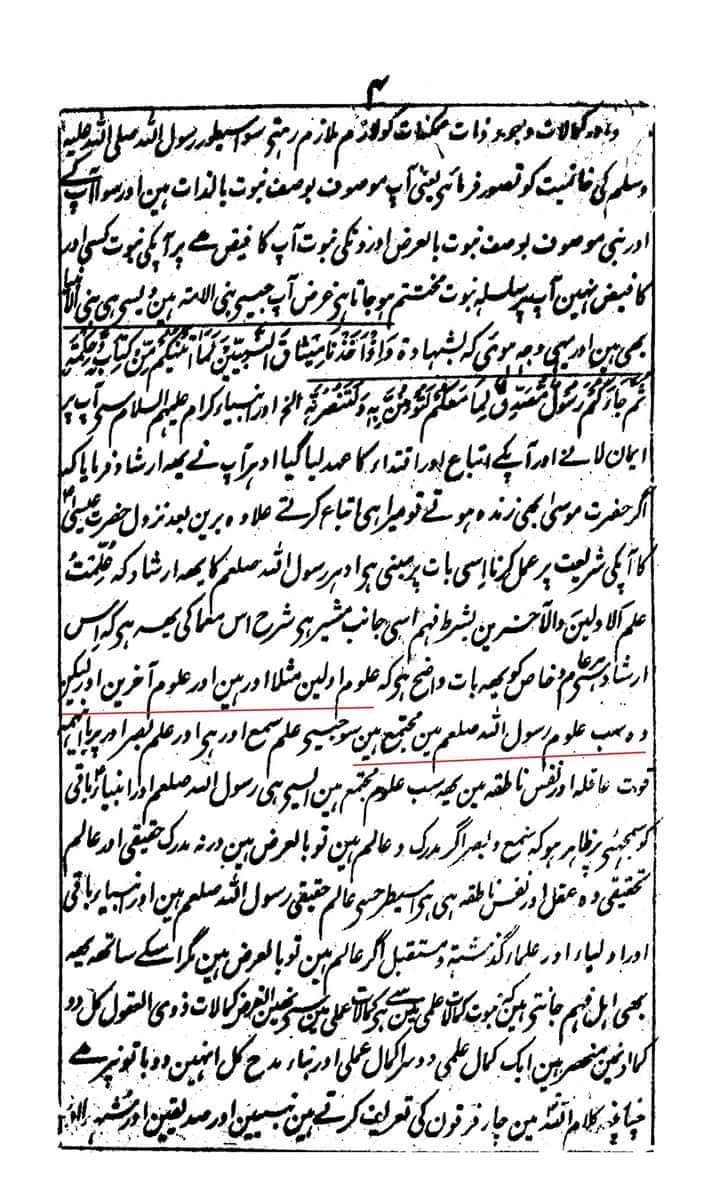 ۴
وجود کمالات وجود ذات ممکنات کو لازم ملازم رہتی سو اسیطور رسول اللہ صلی اللہ علیہ
وسلم کی خاتمیت کو تصور فرمائی یعنی آپ موصوف بوصف نبوت بالذات ہین اور سوا آپ کے
اور نبی موصوف بوصف نبوت بالعرض اورونکی نبوت آپ کا فیض ہے پر آپکی نبوت کسی اور
کا فیض نہین آپ پر سلسلہ نبوت مختتم ہو جاتا ہی غرض آپ جیسی نبی الامتہ ہین ویسی ہی نبی الانبیا
بھی ہین اور یہی وجہ ہوئی کہ بشہادۃ وَاِذْ اَخَذَ نَا مِیْثَاقَ النَّبِیّیْنَ لَمَا آتَیْتُکُمْ مِنْ کِتَابٍ وَّحِکْمَۃٍ
ثُمَّ جَاءَکُمْ رَسُوْلٌ مُصَدِّقٌ لِمَا مَعَکُمْ لَتُؤْمِنُنَّ بِہٖ وَلَتَنْصُرُنَّہٗ الخ اور انبیاء کرام علیہم السلام سی آپ پر
ایمان لانے اور آپکے اتباع اور اقتداء کا عہد لیا گیا ادہر آپ نے یہہ ارشاد فرمایا کہ
اگر حضرت موسیٰ بھی زندہ ہوتے تو میرا ہی اتباع کرتے علاوہ برین بعد نزول حضرت عیسیٰؑ
کا آپکی شریعت پر عمل کرنا اسی بات پر مبنی ہی ادہر رسول اللہ صلعم کا یہہ ارشاد کہ عُلِّمْتُ
علم الاولین والآخرین بشرط فہم اسی جانب مشیر ہی شرح اس معما کی یہہ ہی کہ اِس
ارشاد سی ہر عام و خاص کو یہہ بات واضح ہی کہ علوم اولین مثلا اور ہین اور علوم آخرین اور لیکن
وہ سب علوم رسول اللہ صلعم مین مجتمع ہین سو جیسی علم سمع اور ہی اور علم بصر اور پر باینہمہ
قوت عاقلہ اور نفس ناطقہ مین یہہ سب علوم مجتمع ہین ایسی ہی رسول اللہ صلعم اور انبیاءؑ باقی
کو سمجہئی پر ظاہر ہو کہ سمع و بصر اگر مدرک و عالم ہین تو بالعرض ہین ورنہ مدرک حقیقی اور عالم
تحقیقی وہ عقل اور نفس ناطقہ ہی ہی اسیطرحسی عالم حقیقی رسول اللہ صلعم ہین اور انبیاء باقی
اور اولیاء اور علماء گذشتہ و مستقبل اگر عالم ہین تو بالعرض ہین مگر اسکے ساتھ یہہ
بھی اہل فہم جانتی ہین کہ نبوت کمالات علمی مین سے ہی کمالات عملی مین سی نہین الغرض کمالات ذوی العقول کل دو
کمالونمین منحصر ہین ایک کمال علمی دوسرا کمال عملی اور بناء مدح کل انہین دو باتونپر ہے
چنانچہ کلام اللہ مین چار فرقون کی تعریف کرتے ہین نبیین اور صدیقین اور شہداء اور